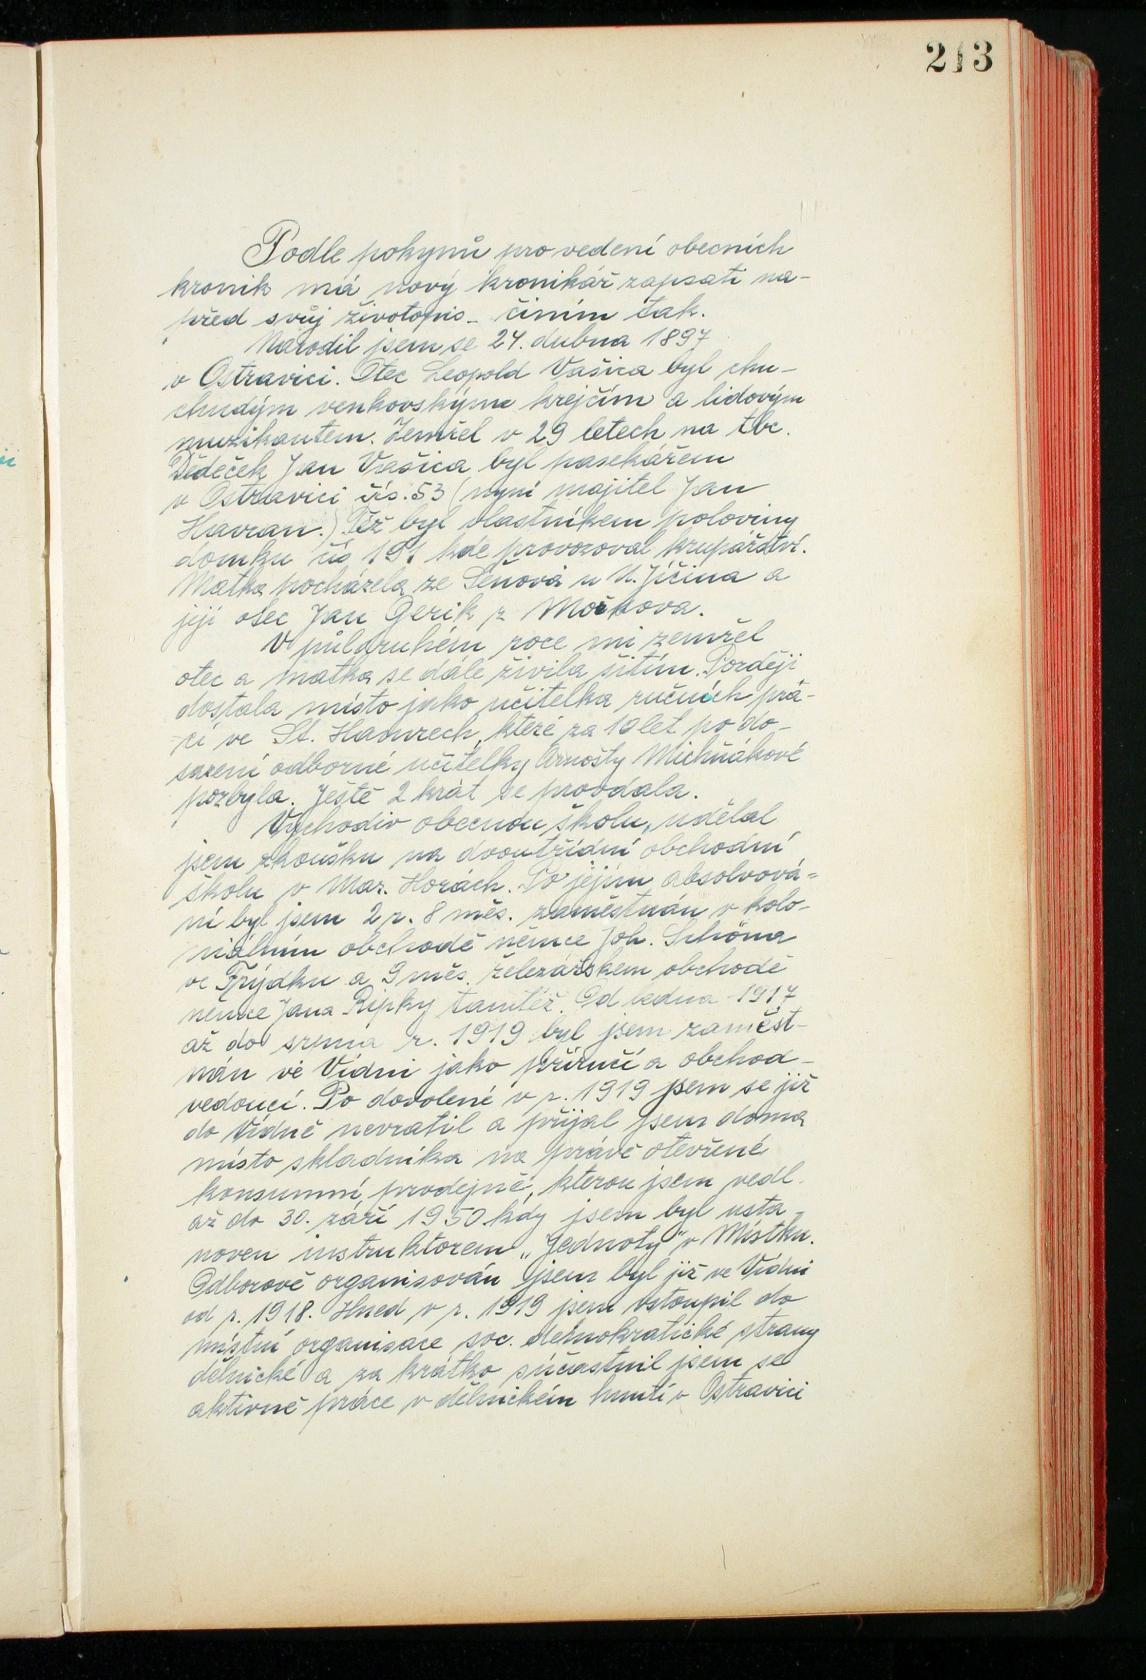 213
Podle pokynů pro vedení obecních
kronik má nový kronikář zapsati na-
před svůj životopis - činím tak.
Narodil jsem se 24. dubna 1897
v Ostravici. Otec Leopold Vašica byl chu-
chudým venkovským krejčím a lidovým
muzikantem. Zemřel v 29 letech na tbc.
Dědeček Jan Vašica byl pasekářem
v Ostravici čís. 53 (nyní majitel Jan
Havran.) Též byl vlastníkem poloviny
domku čís 191 kde provozoval krupařství.
Matka pocházela ze Šenova u N. Jičína a
její otec Jan Gerik z Mořkova.
V půldruhém roce mi zemřel
otec a matka se dále živila šitím. Později
dostala místo jako učitelka ručních prá-
cí ve St. Hamrech, které za 10 let po do-
sazení odborné učitelky Arnošty Michňákové
pozbyla. Ještě 2 krát se provdala.
Vychodiv obecnou školu, udělal
jsem zkoušku na dvoutřídní obchodní
školu v Mar. Horách. Po jejím absolvová-
ní byl jsem 2 r. 8 měs. zaměstnán v kolo-
niálním obchodě němce Joh. Schöna
ve Frýdku a 9 měs. železářském obchodě
němce Jana Ripky tamtéž. Od ledna 1917
až do srpna r. 1919 byl jsem zaměst-
nán ve Vídni jako příručí a obchod-
vedoucí. Po dovolené v r. 1919 jsem se již
do Vídně nevrátil a přijal jsem doma
místo skladníka na právě otevřené
konsumní prodejně, kterou jsem vedl
až do 30. září 1950 kdy jsem byl usta-
noven instruktorem „Jednoty" v Místku.
Odborově organisován jsem byl již ve Vídni
od r. 1918. Hned v r. 1919 jsem vstoupil do
místní organisace soc. demokratické strany
dělnické a za krátko súčastnil jsem se
aktivně práce v dělnickém hnutí v Ostravici